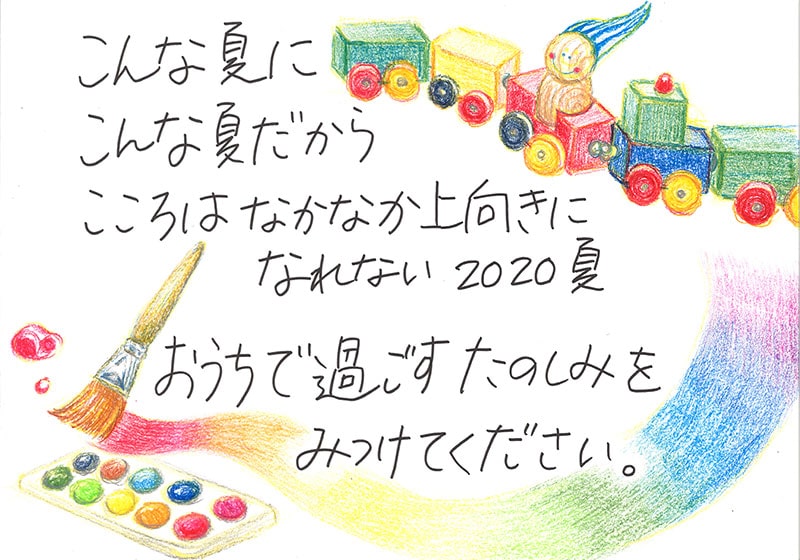 こんな夏に
こんな夏だから
こころはなかなか上向きに
なれない 2020夏
おうちで過ごすたのしみを
みつけてください。